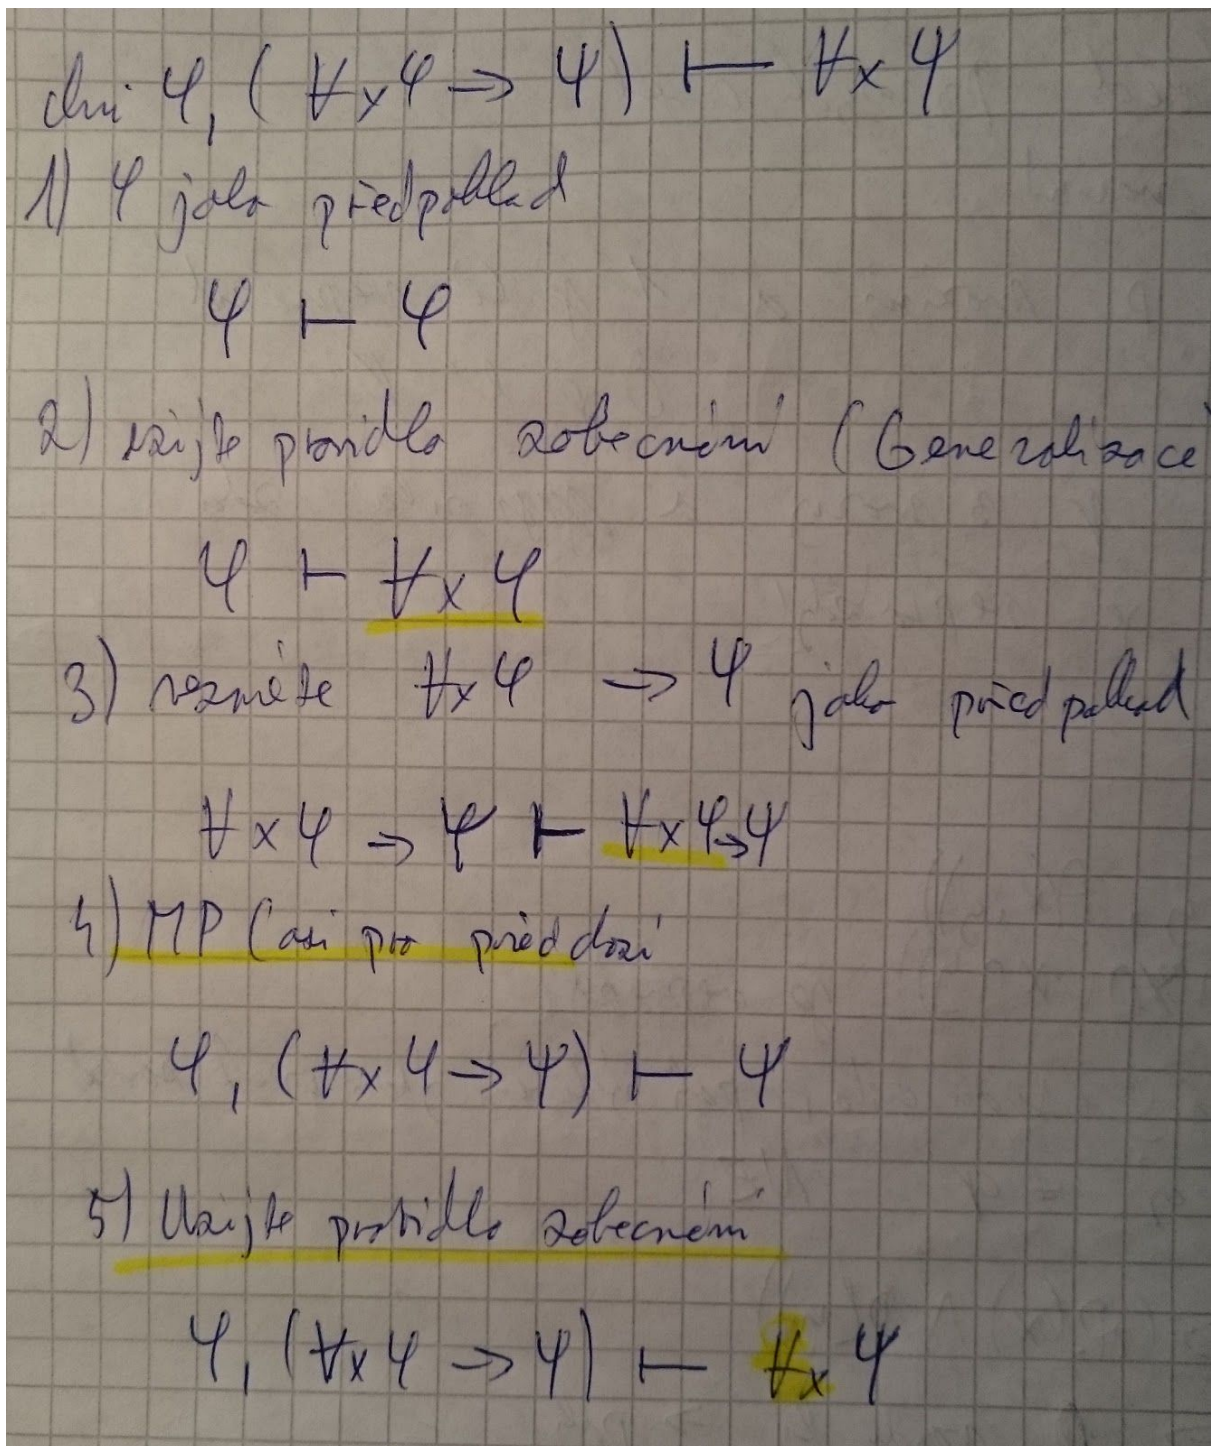 φ, (∀x φ → ψ) ⊢ ∀x ψ
1) φ jako předpoklad
φ ⊢ φ
2) užijte pravidlo zobecnění (Generalizace
φ ⊢ ∀x φ
3) vezměte ∀x φ → ψ jako předpoklad
∀x φ → ψ ⊢ ∀x φ → ψ
4) MP (asi pro předchozí
φ, (∀x φ → ψ) ⊢ ψ
5) Užijte pravidlo zobecnění
φ, (∀x φ → ψ) ⊢ ∀x ψ